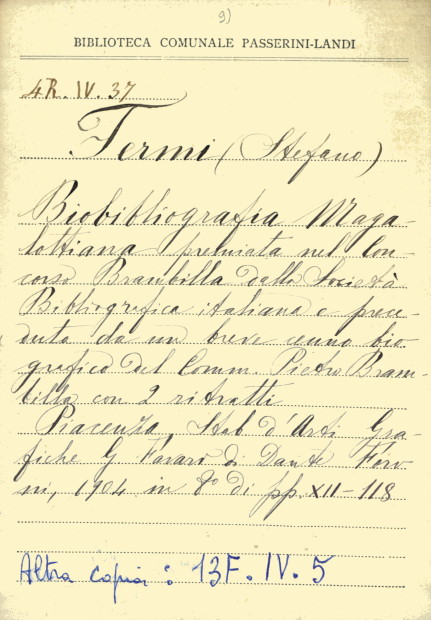 9)
BIBLIOTECA COMUNALE PASSERINI-LANDI
4R. IV. 37
Fermi (Stefano)
Biobibliografia Maga-
lottiana premiata nel Con-
corso Brambilla dalla Società
Bibliografica italiana e prece-
duta da un breve cenno bio-
grafico del Comm. Pietro Bram-
billa con 2 ritratti
Piacenza, Stab d'Arti Gra-
fiche G Favari di Dante Foro-
ni, 1904 in 8° di pp. XII-118
Altra copia: 13F. IV. 5